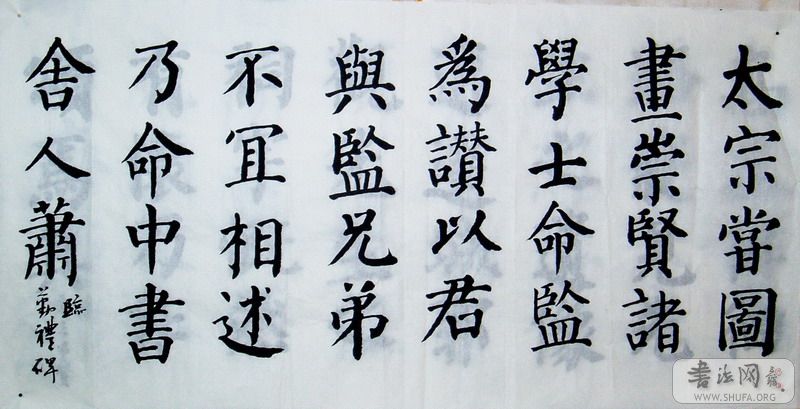 太宗甞圖
畫崇賢諸
學士命監
爲讃以君
與監兄弟
不冝相述
乃命中書
舎人蕭
臨
勤禮碑
書法网
WWW.SHUFA.ORG